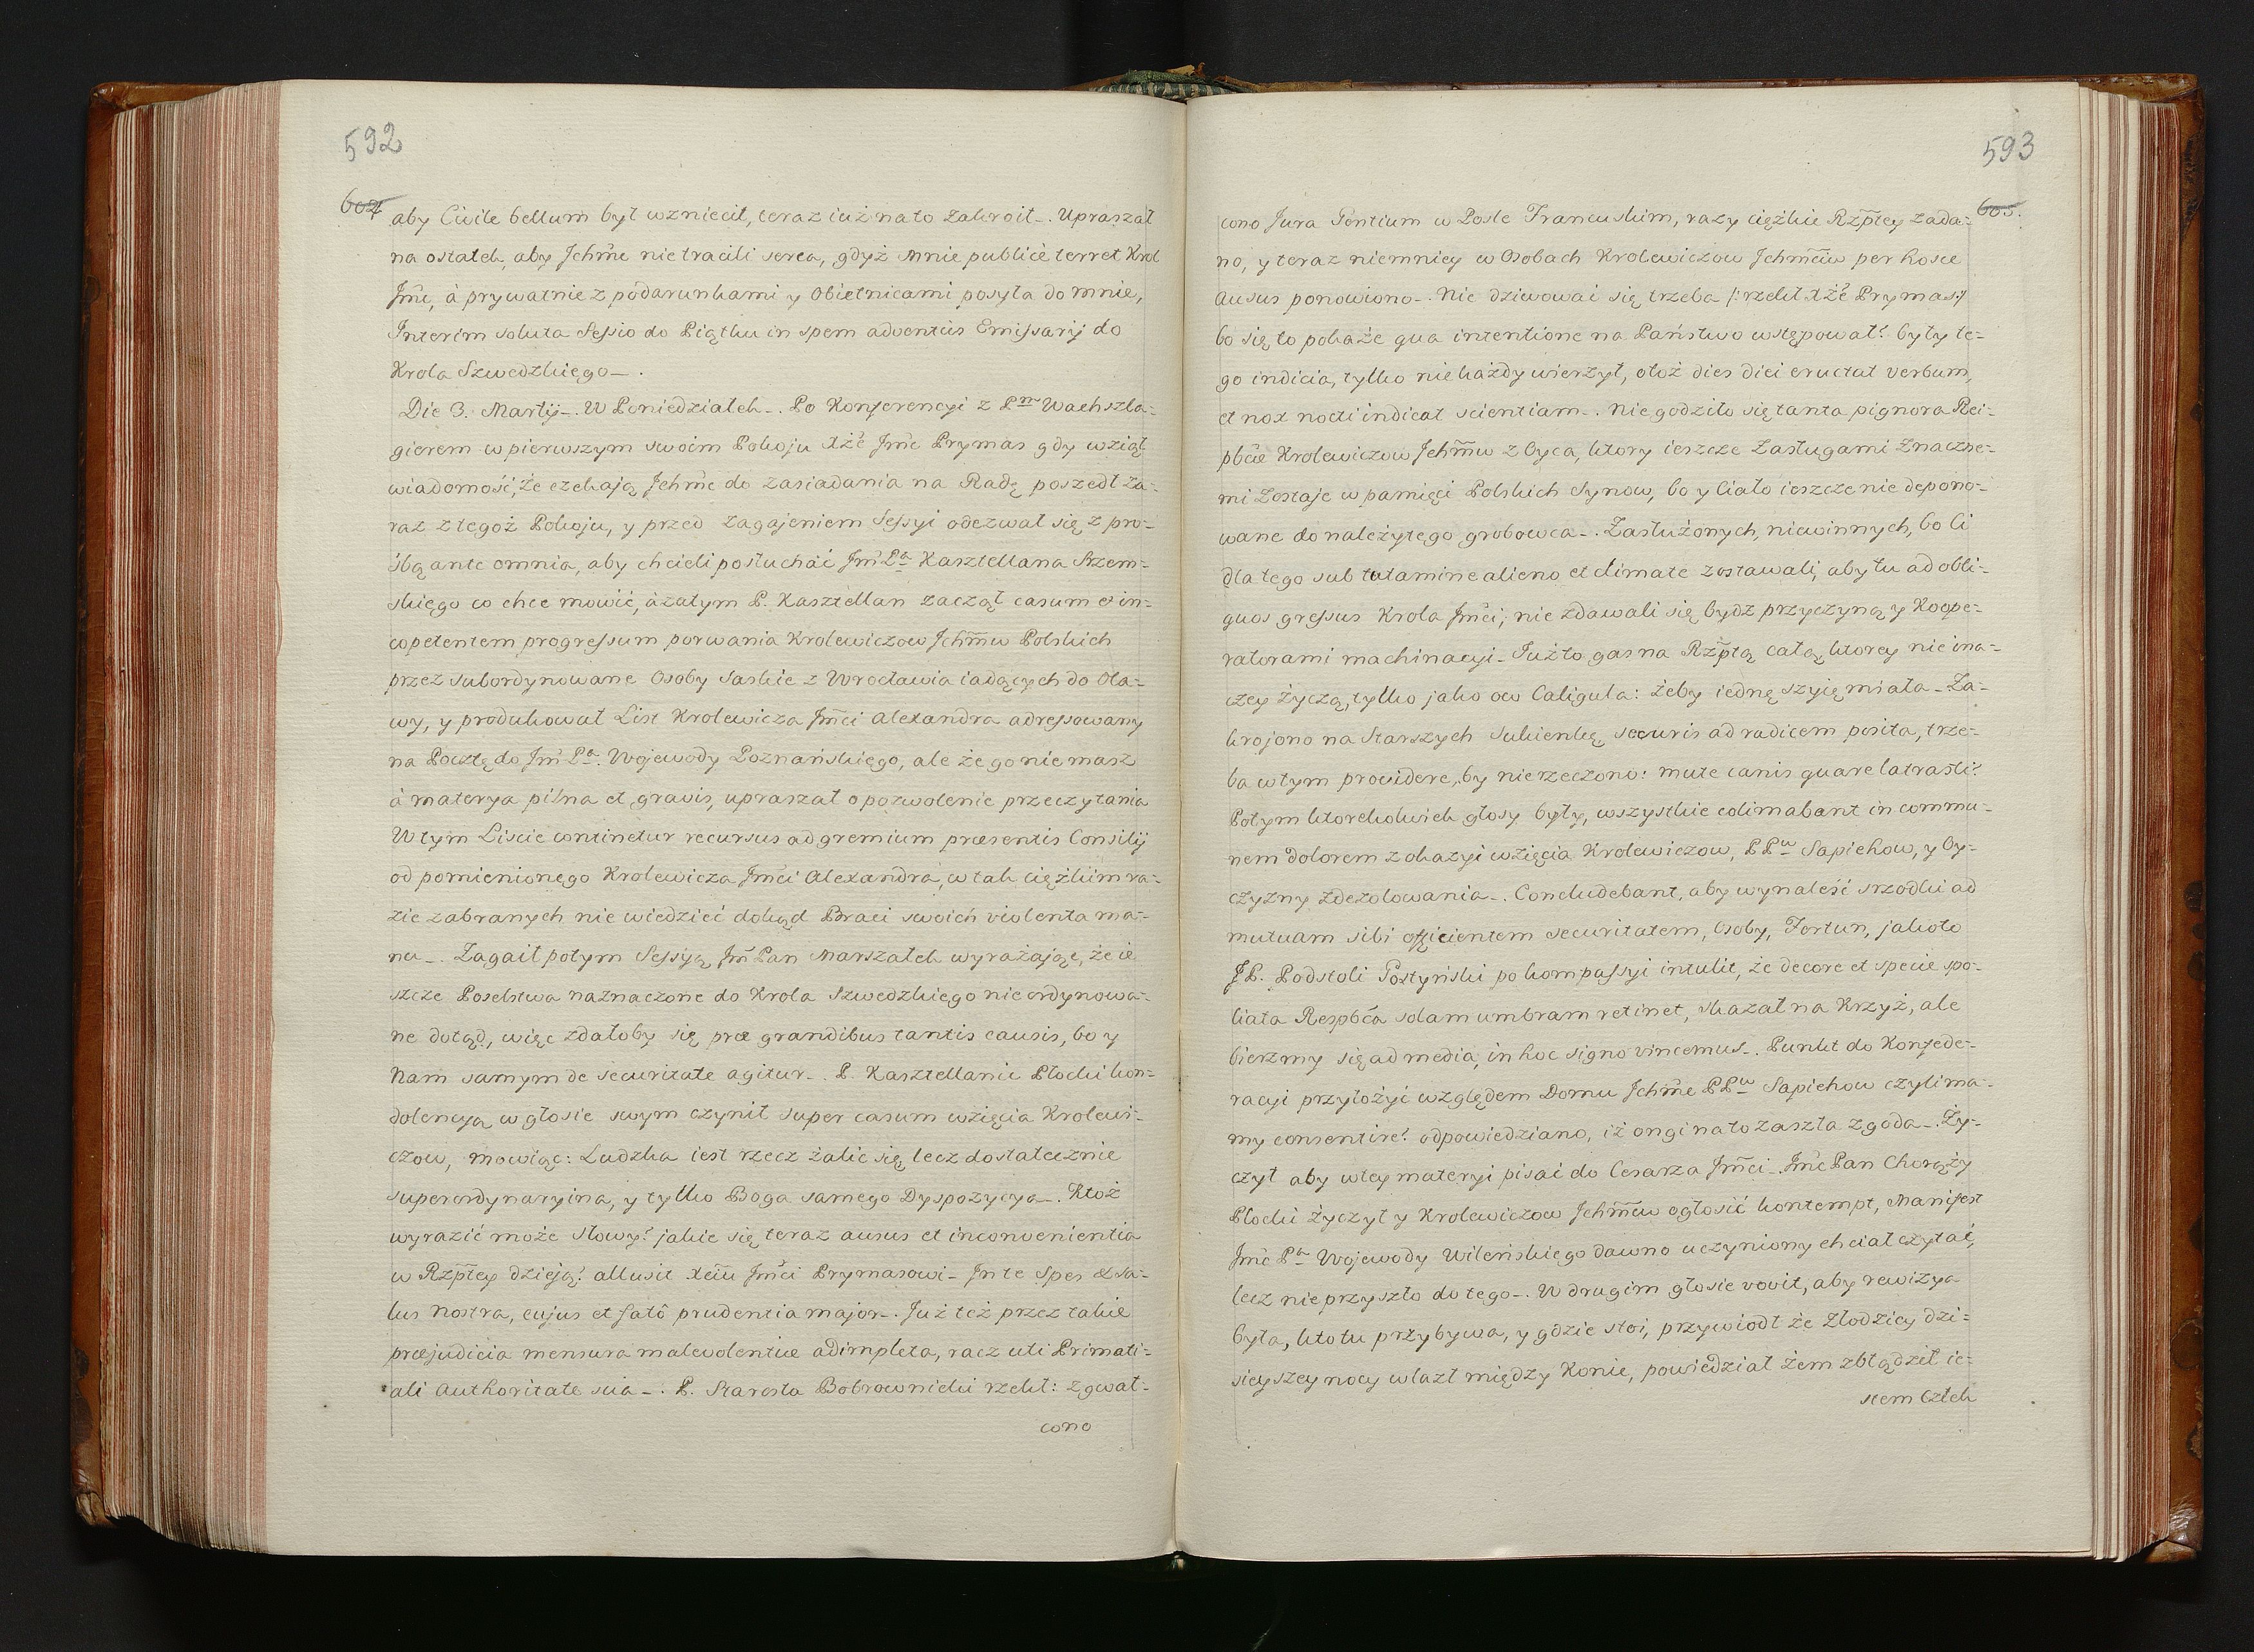 592
604
aby Civile bellum był wzniecił, teraz iuż na to zakroił_. Upraszał
na ostatek, aby Jchm̃c nie tracili serca, gdyż mnie publicè terret Krol
Jm̃c, à prywatnie z podarunkami y Obietnicami posyła do mnie,
Interim soluta Sessio do Piątku in spem adventûs Emissarij do
Krola Szwedzkiego_.
Die 3. Martij_. W Poniedziałek_. Po Konferencyi z Pm Wachszla-
gierem w pierwszym swoim Pokoju Xże Jm̃c Prymas gdy wziął
wiadomość, że czekają Jchm̃c do zasiadania na Radę poszedł za-
raz z tegoż Pokoju, y przed zagajeniem Sessyi odezwał się z pro-
śbą ante omnia, aby chcieli posłuchać Jm̃ Pa Kasztellana Srzem-
skiego co chce mowić, à zatym P. Kasztellan zaczął casum & in-
copetentem progressum porwania Krolewiczow Jchm̃w Polskich
przez subordynowane Osoby Saskie z Wrocławia iadących do Oła-
wy, y produkował List Krolewicza Jm̃ci Alexandra adressowany
na Pocztę do Jm̃ Pa. Wojewody Poznańskiego, ale że go nie masz
à materya pilna et gravis, upraszał o pozwolenie przeczytania
W tym Liscie continetur recursus ad gremium præsentis Consilij
od pomienionego Krolewicza Jm̃ci Alexandra, w tak cięzkim ra-
zie zabranych nie wiedzieć dokąd Braci swoich violenta ma-
nu_. Zagaił potym Sessyą Jm̃ Pan Marszałek wyrażając, że ie
szcze Poselstwa naznaczone do Krola Szwedzkiego nie ordynowa-
ne dotąd, więc zdałoby się præ grandibus tantis causis, bo y
Nam samym de securitate agitur_. P. Kasztellanic Płocki kon-
dolencyą w głosie swym czynił super casum wzięcia Krolewi-
czow, mowiąc: Ludzka iest rzecz żalic się lecz dostatecznie
superordynaryina, y tylko Boga samego Dyspozycya_. Ktoż
wyrazić może słowy? jakie się teraz ausus et inconvenientia
w Rzp̃tey dzieją? allusit Xciu Jm̃ci Prymasowi_ In te Spes & Sa-
lus nostra, cujus et fatô prudentia major_. Już też przez takie
præjudicia mensura malevolentiæ adimpleta, racz uti Primati-
ali Authoritate sua_. P. Starosta Bobrownicki rzekł: zgwał-
cono
593
605.
cono Jura Gentium w Posle Francuskim, razy ciężkie Rzp̃tey zada-
no, y teraz niemniey w Osobach Krolewiczow Jchm̃ciw per hosce
ausus ponowiono_. Nie dziwować się trzeba /: rzekł Xże Prymas:/
bo się to pokaże qua intentione na Państwo wstępował? były te-
go indicia, tylko nie każdy wierzył, otoż dies diei eructat verbum,
et nox nocti indicat scientiam_. Nie godziło się tanta pignora Rei-
pb̃cæ Krolewiczow Jchm̃w z Oyca, ktory ieszcze Zasługami Znaczne-
mi zostaje w pamięci Polskich Synow, bo y Ciało ieszcze nie depono-
wane do należytego grobowca_. Zasłużonych, niewinnych, bo Ci
dla tego sub tutamine alieno et climate zostawali, aby tu ad obli-
quos gressus Krola Jm̃ci, nie zdawali się bydz przyczyną y Koope-
ratorami machinacyi_ Już to gas na Rzp̃tą całą, ktorey nie ina-
czey życzą, tylko jako ow Caligula: żeby iednę szyię miała_ Za-
krojono na Starszych Sukienkę, securis ad radicem posita, trze-
ba w tym providere, by nie rzeczono: mute canis quare latrasti?
Potym ktorekolwiek głosy były, wszystkie colimabant in commu-
nem dolorem z okazyi wzięcia Krolewiczow, PPw Sapiehow, y Oy-
czyzny zdezolowania_. Concludebant, aby wynaleść srzodki ad
mutuam sibi efficientem securitatem, Osoby, Fortun, jakoto
JP. Podstoli Gostyński po kompassyi intulit, że decore et specie spo-
liata Respb̃ca solam umbram retinet, skazał na Krzyż, ale
bierzmy się ad media, in hoc signo vincemus_. Punkt do Konfede-
racyi przyłożyć względem Domu Jchm̃c PPw Sapiehow czyli ma-
my consentire? odpowiedziano, iż ongi na to zaszła zgoda_. Ży-
czył aby w tey materyi pisać do Cesarza Jm̃ci_ Jm̃c Pan Chorąży
Płocki życzył y Krolewiczow Jchm̃ciw ogłosić kontempt, Manifest
Jm̃c Pa Wojewody Wileńskiego dawno uczyniony chciał czytać,
lecz nie przyszło do tego_. W drugim głosie vovit, aby rewizya
była, kto tu przybywa, y gdzie stoi, przywiodł że Złodziey dzi-
sieyszey nocy wlazł między Konie, powiedział żem zbłądził ie-
stem Człek